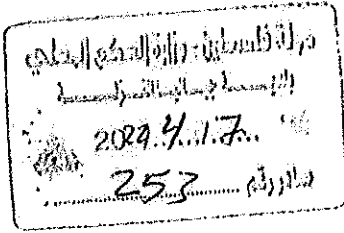 دولة فلسطين - وزارة الحكم المحلي
2024.4.17
صادر رقم 253